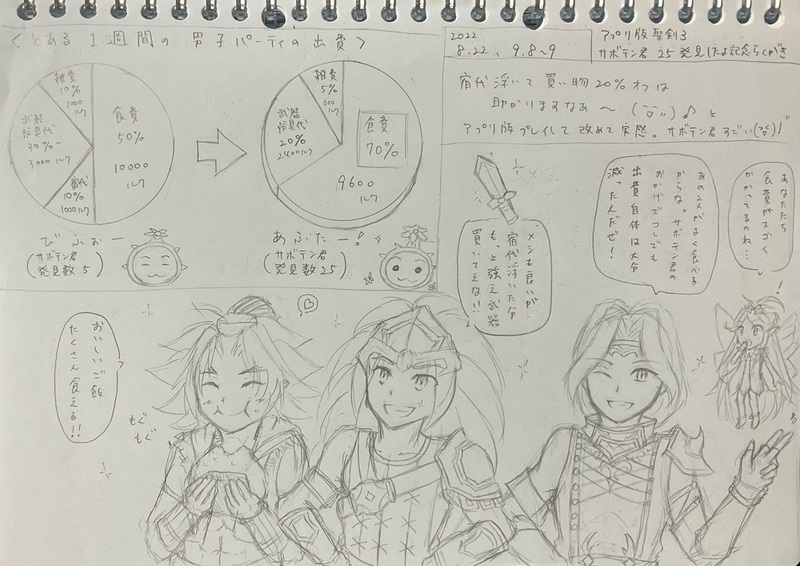 <とある1週間の男子パーティの出費>
雑費
10%
1000
ルク
武器
防具代
30%
3000ルク
宿代
10%
1000ルク
食費
50%
10000
ルク
びふぉー
(サボテン君
発見数5)
雑費
5%
ルク
武器
防具代
20%
2400ルク
食費
70%
9600
ルク
あふたー!
(サボテン君
発見数25)
2022
8.22、9.8~9
アプリ版聖剣3
サボテン君25発見したよ記念らくがき
宿代浮いて買い物20%オフは
助かりますなあ~
と
アプリ版プレイして改めて実感。サボテン君すごい
あなたたち
食費がスゴく
かかってるのね…
!
あの2人がよく食べる
からな。サボテン君の
おかげでこれでも
出費自体は大分
減ったんだぜ!
メシも良いが
宿代浮いた分
もっと強え武器
買いてえな!!
おいしいご飯
たくさん食える!!
もぐ
もぐ